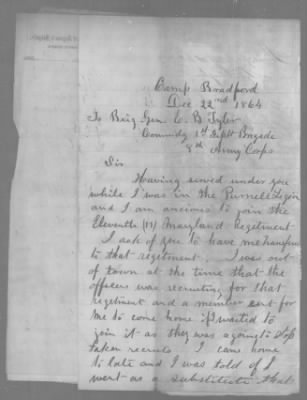 Camp Bradford
Dec 22nd 1864
To Brig Gen E. B Tyler
Commdg 1st Sept Brigade
8th Army Corps
Sir
Having served under you
while I was in the Purnell Legion
and I am ancious to join the
Eleventh (11) Maryland Regiment
I ask of you to have me transfered
to that regiment. I was out
of town at the time that the
officers was recruiting for that
regiment and a member sent for
me to come home if I wanted to
join it as they was agoing to stop
taken recruits I came home
to late and I was told if I
went as a substitute that